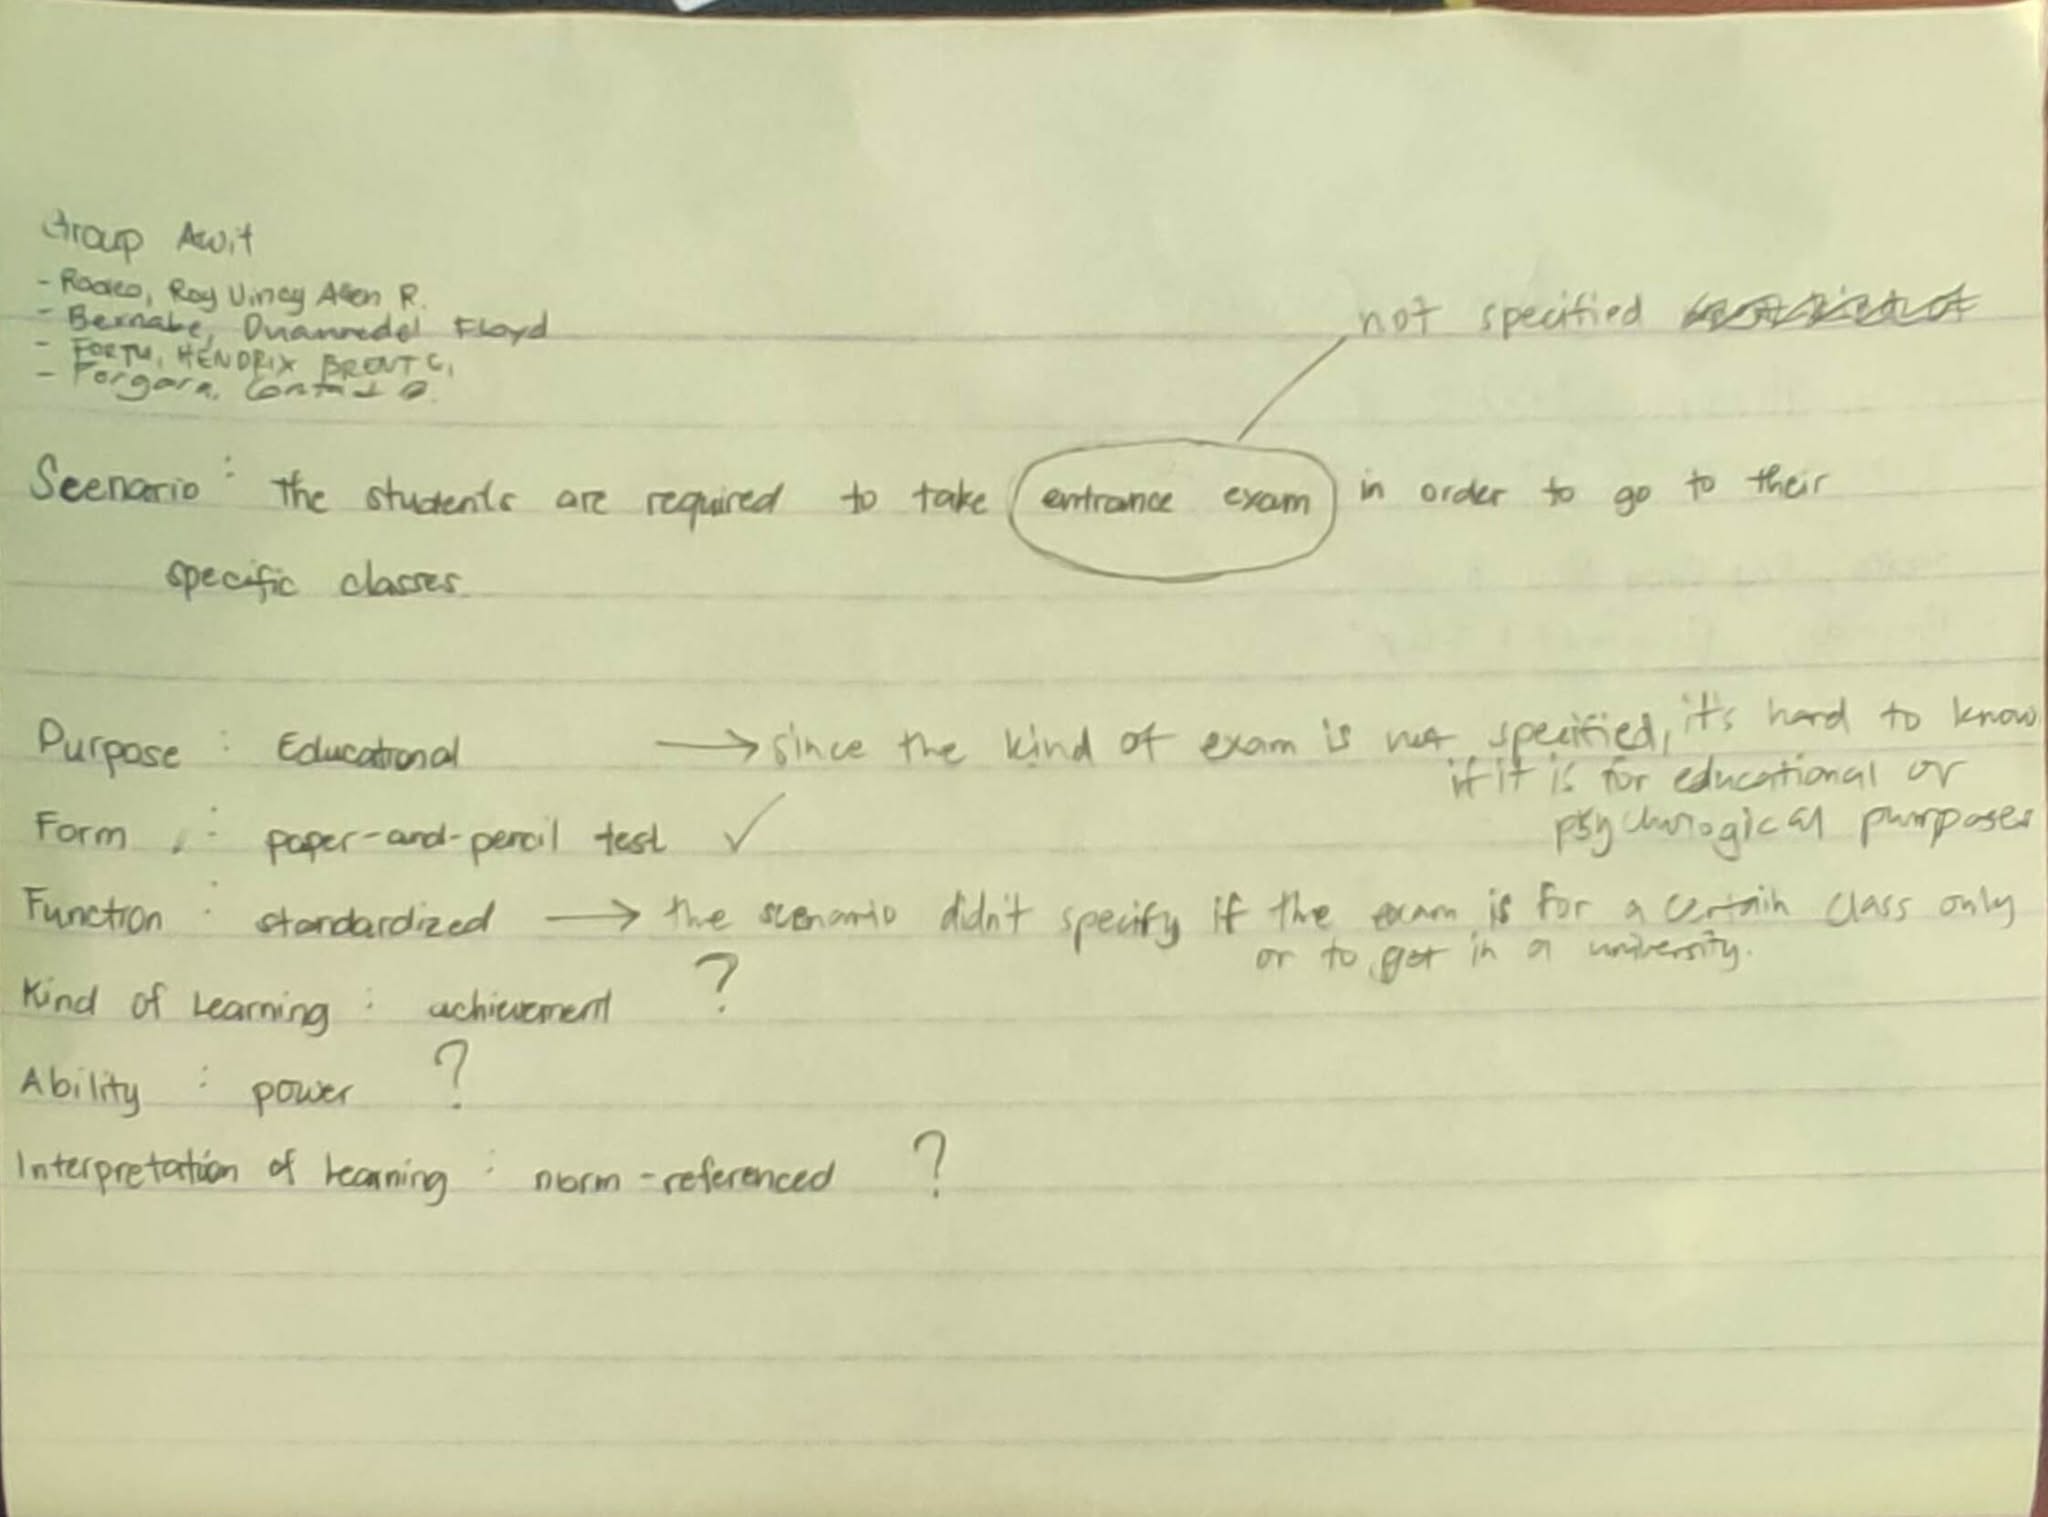 Group Awit
- Rodeo, Roy Vincy Allen R.
- Bernabe, Duannedel Floyd
- FORTU, HENDRIX BRENT C.
- Forgara,
not specified
Scenario : The students are required to take entrance exam in order to go to their
specific classes.
Purpose : Educational → since the kind of exam is not specified, it's hard to know
if it is for educational or
psychological purposes
Form : paper-and-pencil test ✓
Function : standardized → the scenario didn't specify if the exam is for a certain class only
or to get in a university.
Kind of Learning : achievement ?
Ability : power ?
Interpretation of Learning : norm-referenced ?